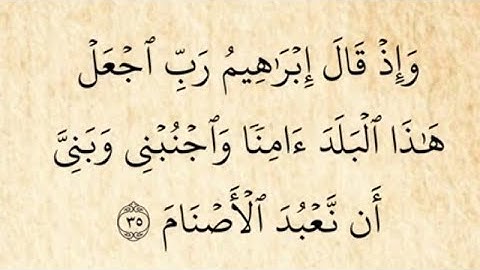 وَإِذۡ قَالَ إِبۡرَٰهِيمُ رَبِّ ٱجۡعَلۡ
هَٰذَا ٱلۡبَلَدَ ءَامِنٗا وَٱجۡنُبۡنِي وَبَنِيَّ
أَن نَّعۡبُدَ ٱلۡأَصۡنَامَ ٣٥